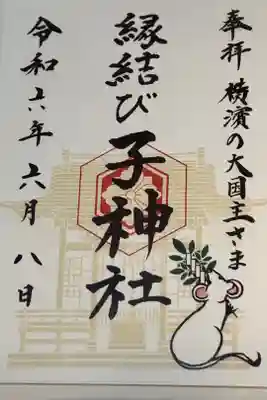 奉拝 横濱の大国主さま
縁結び 子神社
令和六年 六月 八日